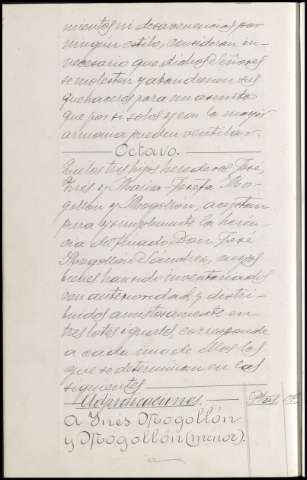 mientos ni desavenencias por
ningun estilo, consideran in-
necesario que dichos Señores
se molesten y abandonen sus
quehaceres para un asunto
que por si solos y con la mayor
armonia pueden ventilar.
Octavo.
Que los tres hijos herederos José,
Ines y Maria-Josefa Mo-
gollón y Mogollón, aceptan
pura y simplemente la heren-
cia del finado Don José
Mogollón Sánchez, cuyos
bienes han sido inventariados
con anterioridad, y distri-
buidos amistosamente en
tres lotes iguales, corresponde
a cada uno de ellos los
que se determinan en las
siguientes
Adjudicaciones.
A Ines Mogollón
y Mogollón (menor).